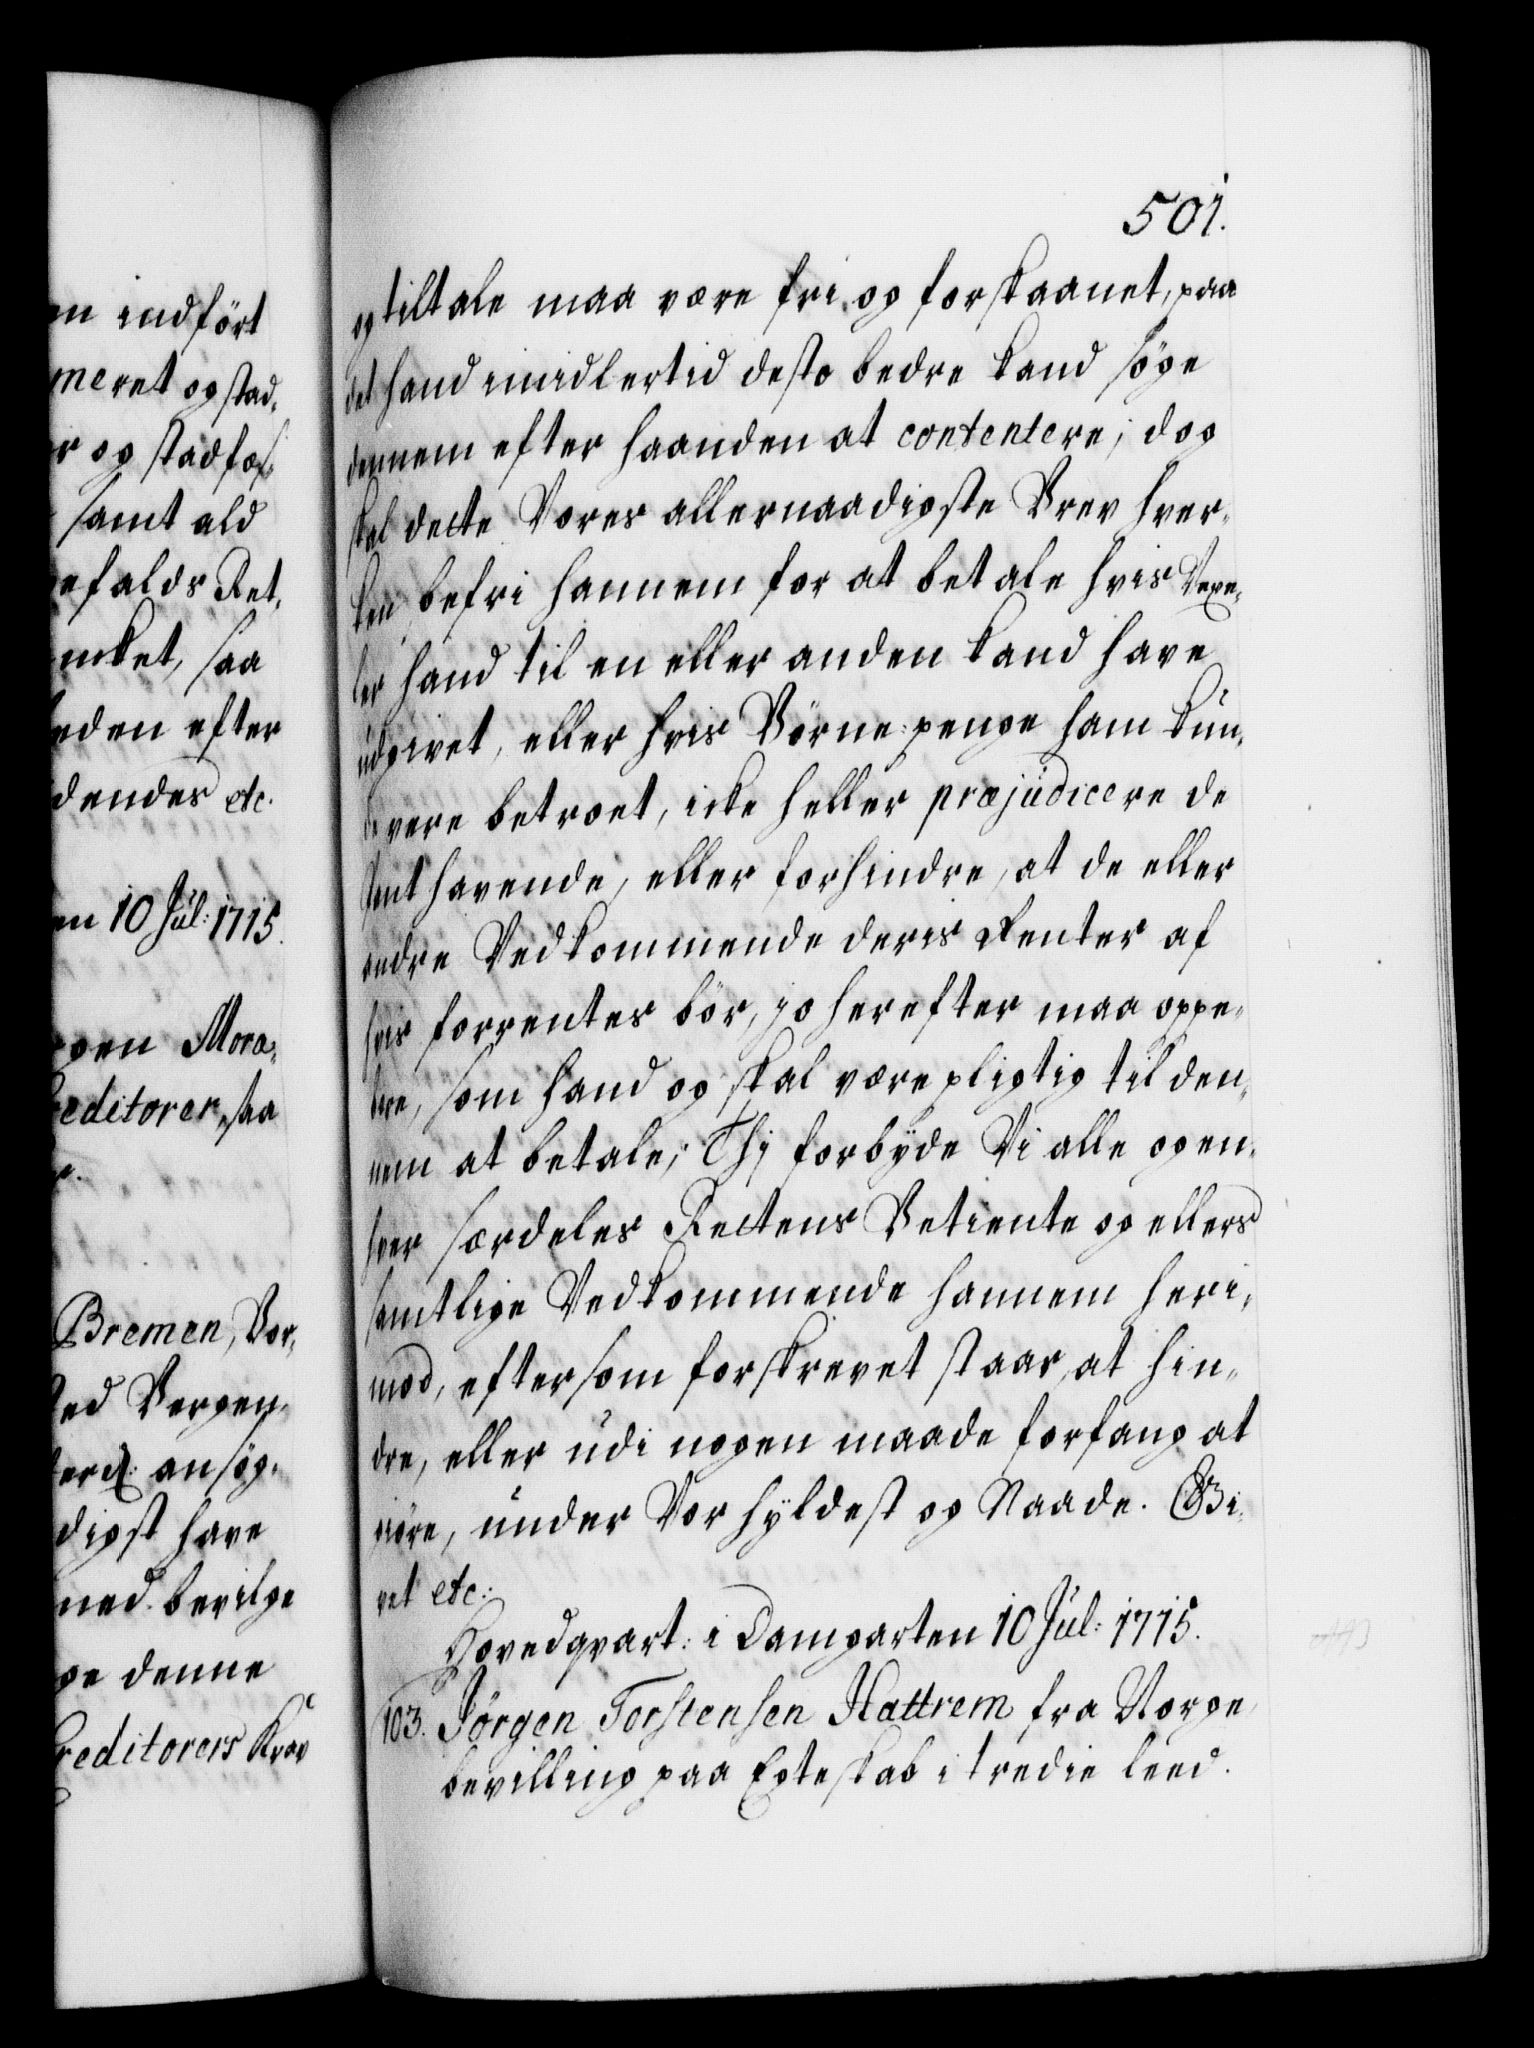 en indført
meret og stad-
r og stadfæs-
samt ald
efalds Ret-
enket, saa
eden efter
dendes etc.
en 10 Jul: 1715.
gen Mora-
reditorer, saa
r.
Bremen, Vor-
ed Bergen,
ansøg-
digst have
ned. bevilge
ge denne
reditorers Krav
501.
og tiltale maa være fri og forskaanet, paa
det hand imidlertid desto bedre kand søge
dennem efter haanden at contentere; dog
skal dette Vores allernaadigste Brev hver-
ken befri hannem for at betale hvis Vexe-
ler hand til en eller anden kand have
udgivet, eller hvis Börne-penge ham kun-
de vere betroet, icke heller præjudicere de
Pant havende, eller forhindre, at de eller
andre Vedkommende deris Renter af
hvis forrentes bör, jo herefter maa oppe-
bere, som hand og skal være pligtig til den-
nem at betale; Thj forbyde Vi alle og en-
hver særdeles Rettens Betiente og ellers
samtlige Vedkommende hannem heri-
mod, eftersom forskrevet staar, at hin-
dre, eller udi nogen maade forfang at
giöre, under Vor hyldest og Naade. Gi-
vet etc:
Hovedqvart: i Damgarten 10 Jul: 1715.
103. Jörgen Torstensen Hattrem fra Norge,
bevilling paa Egteskab i tredie leed.